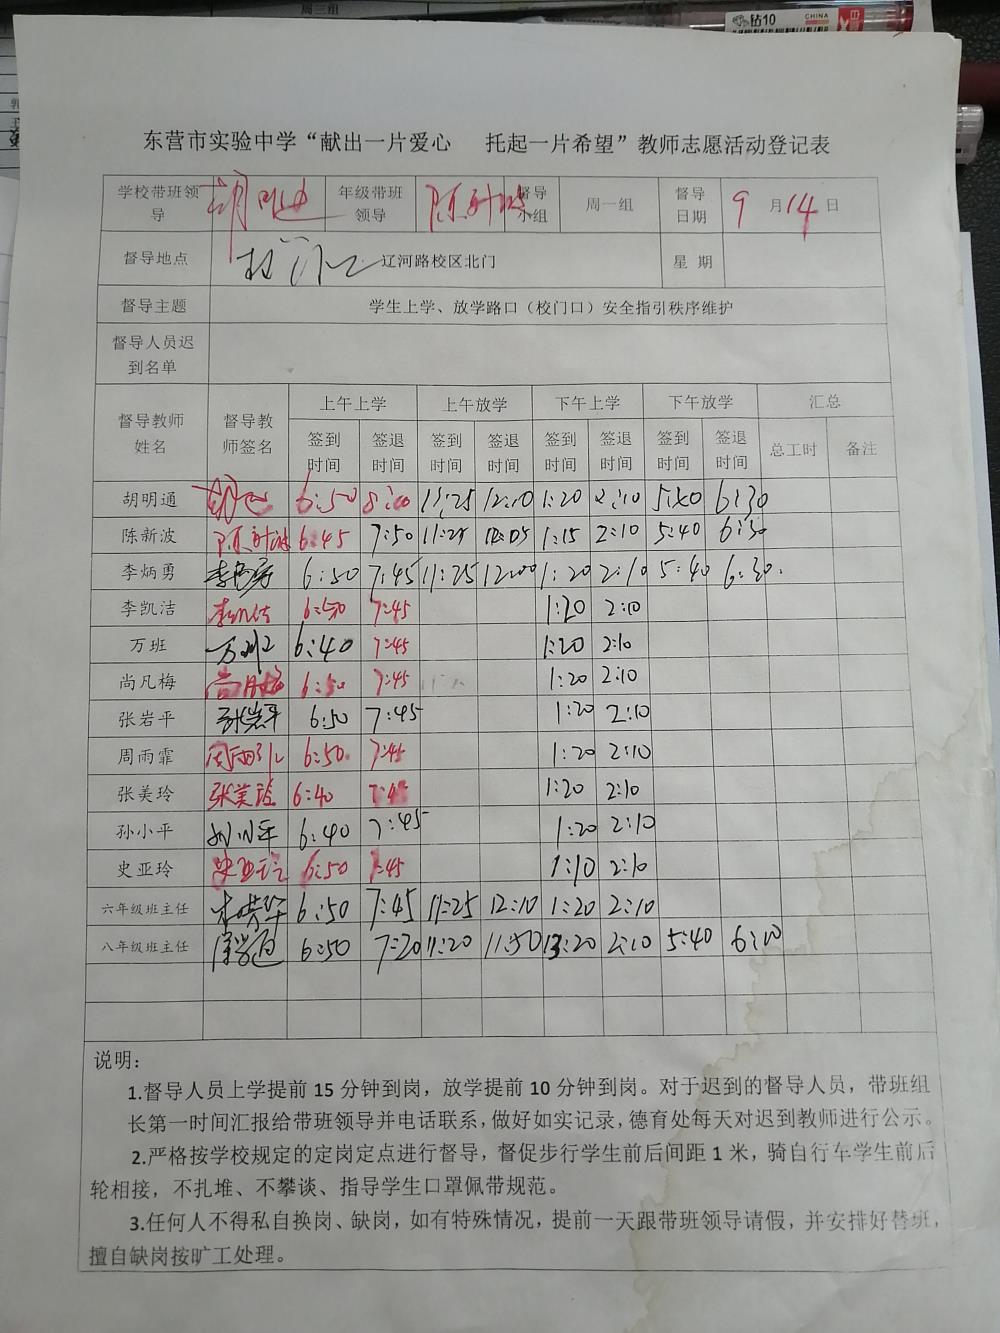 周三组
钻10 CHINA
东营市实验中学“献出一片爱心 托起一片希望”教师志愿活动登记表
学校带班领导 年级带班领导 陈新波 督导小组 周一组 督导日期 9月14日
督导地点 辽河路校区北门 星期
督导主题 学生上学、放学路口（校门口）安全指引秩序维护
督导人员迟到名单
督导教师姓名 督导教师签名 上午上学 上午放学 下午上学 下午放学 汇总
签到时间 签退时间 签到时间 签退时间 签到时间 签退时间 签到时间 签退时间 总工时 备注
胡明通 6:50 8:00 11:25 12:10 1:20 2:10 5:40 6:30
陈新波 陈新波 6:45 7:50 11:25 12:05 1:15 2:10 5:40 6:30
李炳勇 李炳勇 6:50 7:45 11:25 12:00 1:20 2:10 5:40 6:30
李凯洁 李凯洁 6:50 7:45 1:20 2:10
万班 万班 6:40 7:45 1:20 2:10
尚凡梅 尚凡梅 6:50 7:45 1:20 2:10
张岩平 张岩平 6:50 7:45 1:20 2:10
周雨霏 周雨霏 6:50 7:45 1:20 2:10
张美玲 张美玲 6:40 7:45 1:20 2:10
孙小平 孙小平 6:40 7:45 1:20 2:10
史亚玲 史亚玲 6:50 7:45 1:10 2:10
六年级班主任 6:50 7:45 11:25 12:10 1:20 2:10
八年级班主任 6:50 7:20 11:20 11:50 13:20 2:10 5:40 6:10
说明：
1.督导人员上学提前 15 分钟到岗，放学提前 10 分钟到岗。对于迟到的督导人员，带班组
长第一时间汇报给带班领导并电话联系，做好如实记录，德育处每天对迟到教师进行公示。
2.严格按学校规定的定岗定点进行督导，督促步行学生前后间距 1 米，骑自行车学生前后
轮相接，不扎堆、不攀谈、指导学生口罩佩带规范。
3.任何人不得私自换岗、缺岗，如有特殊情况，提前一天跟带班领导请假，并安排好替班，
擅自缺岗按旷工处理。